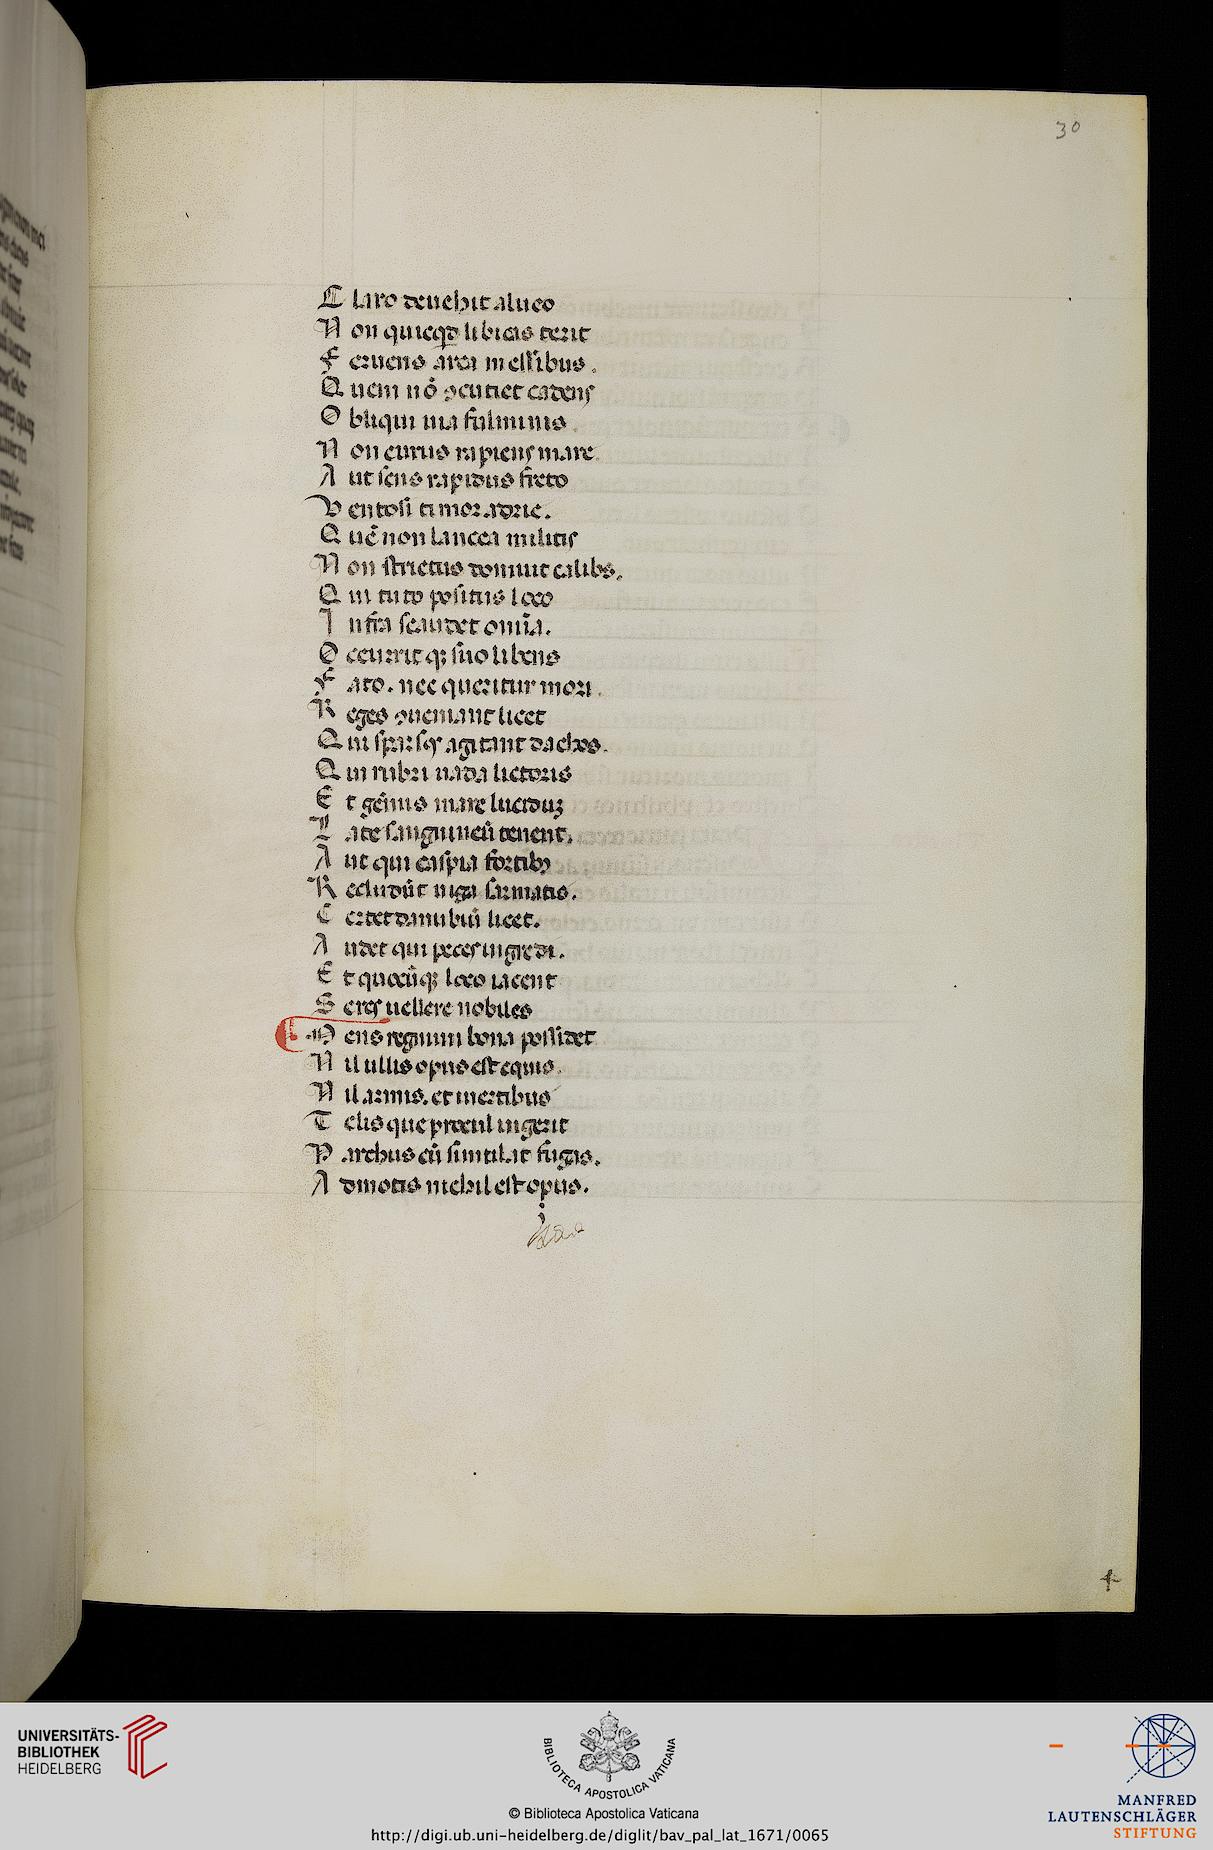 30
C laro deuehit alueo
N on quicqd libicis terit
F eruens area messibus.
Q uem nō ꝯcutiet cadens
O bliqui uia fulminis.
N on eurus rapiens mare.
A ut seus rapidus freto
V entosi timor adrie.
Q uē non lancea militis
N on strictus domuit calibs.
Q ui tuto positus loco
I nfra se audet omīa.
O ccurrit qꝫ suo libens
F ato. nec queritur mori.
R eges ꝯueniant licet
Q ui sparsos agitant dachos.
Q ui rubri uada lictoris
E t gēmis mare luciduꝫ
L ate sanguineū tenent.
A ut qui caspia fortibꝫ
R ecludūt iuga sarmatis.
C ertet danubiū licet.
A udet qui pedes ingredi.
E t quocūqꝫ loco iacent
S eres uellere nobiles
M ens regnum bona possidet
N il ullis opus est equis.
N il armis. et inertibus
T elis que procul ingerit
P arthus cū simulat fugas.
A dmotis nichil est opus.
UNIVERSITÄTS-
BIBLIOTHEK
HEIDELBERG
BIBLIOTECA APOSTOLICA VATICANA
© Biblioteca Apostolica Vaticana
http://digi.ub.uni-heidelberg.de/diglit/bav_pal_lat_1671/0065
MANFRED
LAUTENSCHLÄGER
STIFTUNG